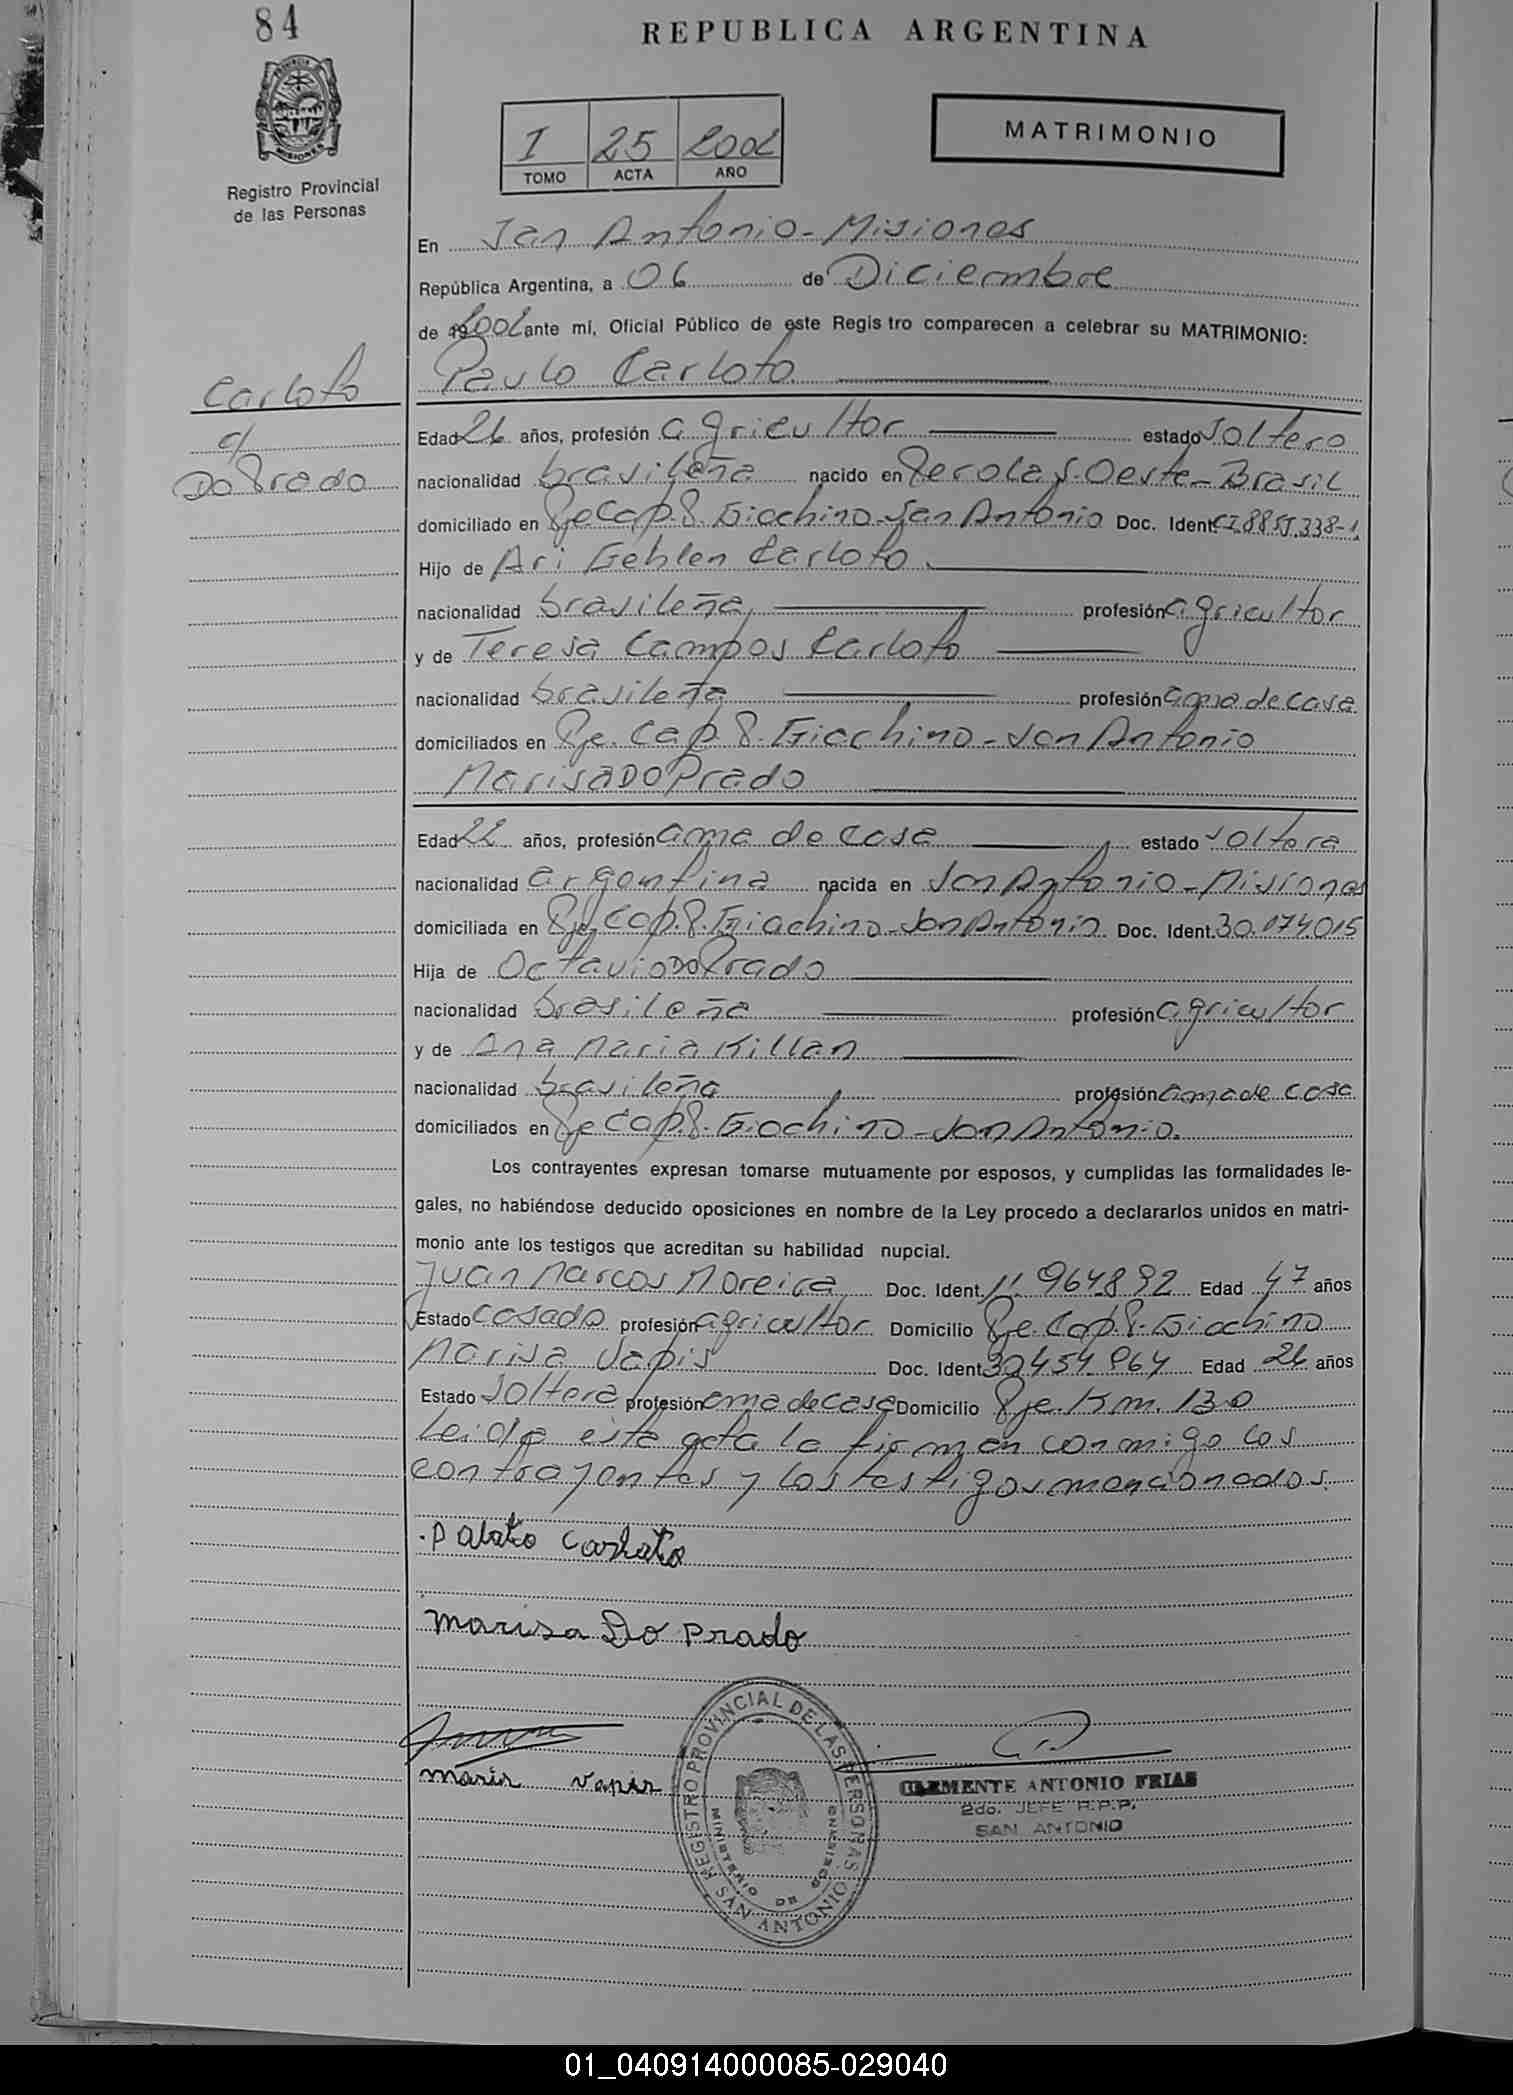 84
REPUBLICA ARGENTINA
MATRIMONIO
I 25 2002
TOMO ACTA AÑO
Registro Provincial
de las Personas
En San Antonio - Misiones
República Argentina, a 06 de Diciembre
de 2002 ante mí, Oficial Público de este Registro comparecen a celebrar su MATRIMONIO:
Carloto
c/
Do Prado
Paulo Carloto
Edad 26 años, profesión agricultor estado soltero
nacionalidad brasileña nacido en Perola S. Oeste - Brasil
domiciliado en Pje Cap. P. Giachino - San Antonio Doc. Ident.
Hijo de Ari Gehlen Carloto
nacionalidad brasileña profesión agricultor
y de Teresa Campos Carloto
nacionalidad brasileña profesión ama de casa
domiciliados en Pje. Cap. P. Giachino - San Antonio
Marisa DO Prado
Edad 22 años, profesión ama de casa estado soltera
nacionalidad argentina nacida en San Antonio - Misiones
domiciliada en Pje. Cap. P. Giachino - San Antonio Doc. Ident. 30.174.015
Hija de Octavio DO Prado
nacionalidad brasileña profesión agricultor
y de Ana Maria Killan
nacionalidad brasileña profesión ama de casa
domiciliados en Pje Cap. P. Giachino - San Antonio.
Los contrayentes expresan tomarse mutuamente por esposos, y cumplidas las formalidades le-
gales, no habiéndose deducido oposiciones en nombre de la Ley procedo a declararlos unidos en matri-
monio ante los testigos que acreditan su habilidad nupcial.
Juan Marcos Moreira Doc. Ident. 11.964.892 Edad 47 años
Estado casado profesión agricultor Domicilio Pje. Cap. P. Giachino
Marisa Vapis Doc. Ident. Edad 26 años
Estado soltera profesión ama de casa Domicilio Pje. Km. 130
Leida esta acta la firman conmigo los
contrayentes y los testigos mencionados.
Carloto
Marisa Do Prado
REGISTRO PROVINCIAL DE LAS PERSONAS
MINISTERIO DE GOBIERNO
SAN ANTONIO
CLEMENTE ANTONIO FRIAS
2do. JEFE R.P.P.
SAN ANTONIO
01_040914000085-029040